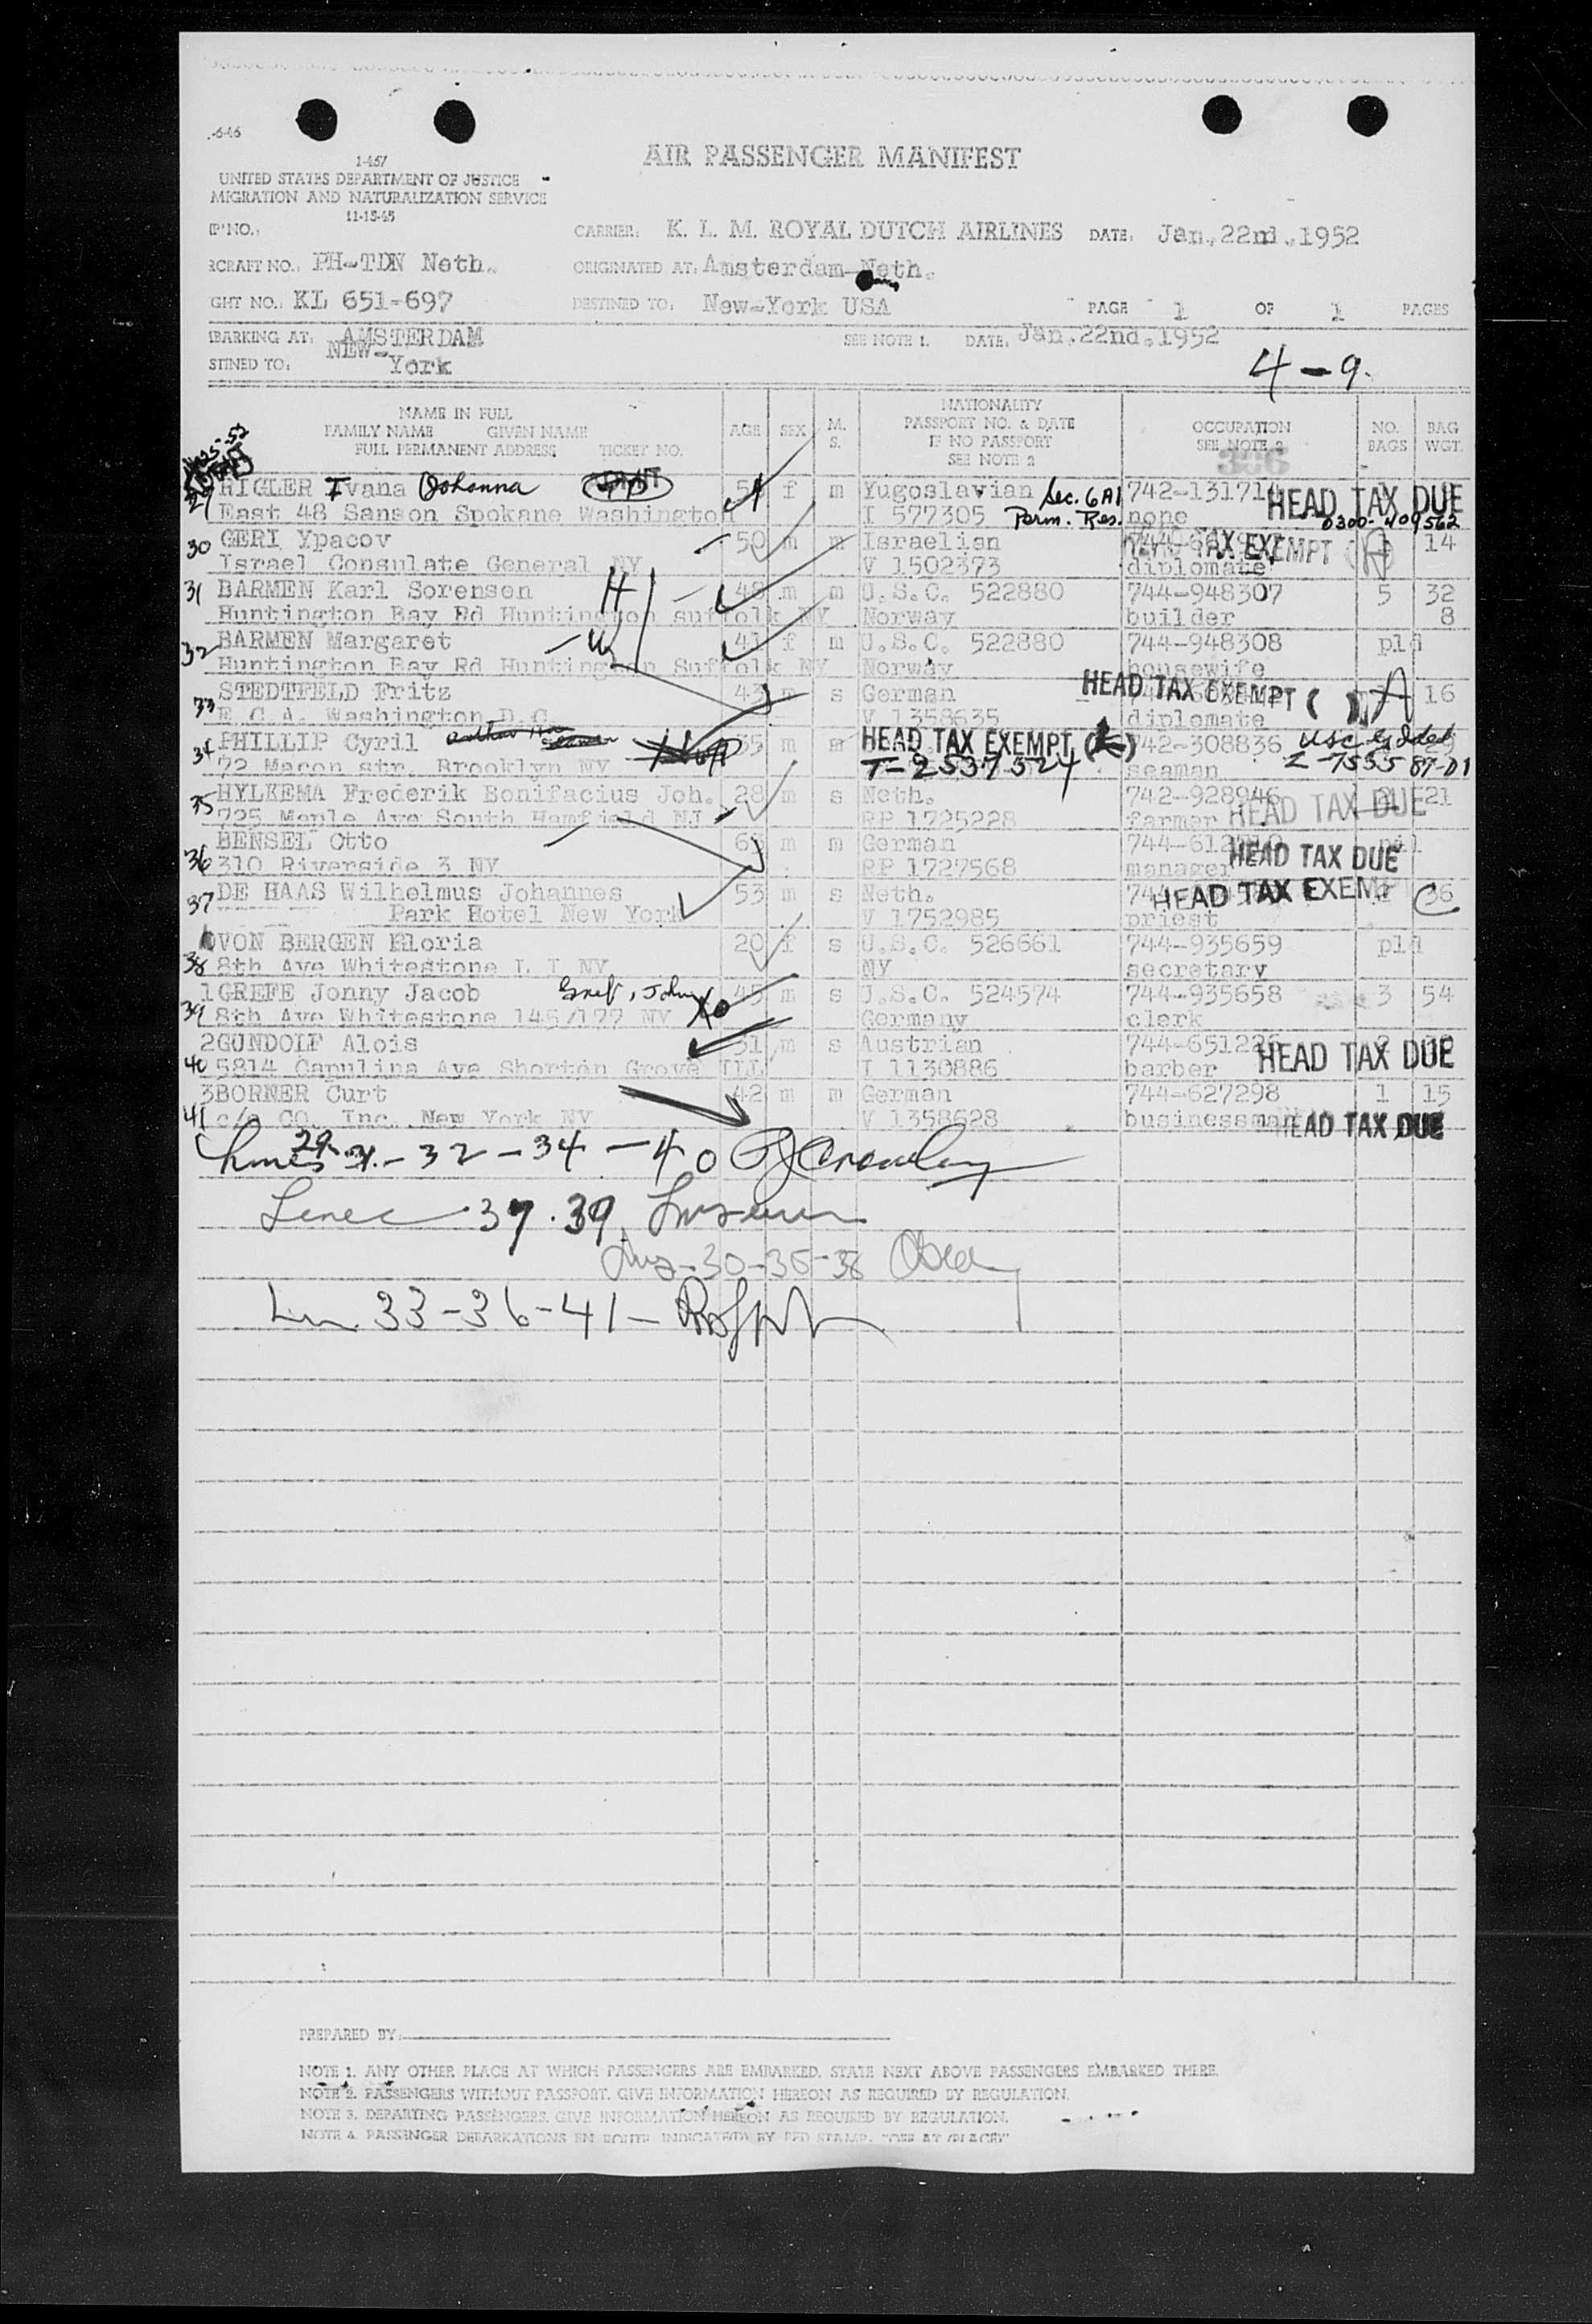 -6-46
1-467
UNITED STATES DEPARTMENT OF JUSTICE
MIGRATION AND NATURALIZATION SERVICE
11-15-45
AIR PASSENGER MANIFEST
IP NO.:
CARRIER: K. L. M. ROYAL DUTCH AIRLINES DATE: Jan.22nd.1952
RCRAFT NO.: PH-TDN Neth. ORIGINATED AT: Amsterdam-Neth.
GHT NO.: KL 651-697 DESTINED TO: New-York USA PAGE 1 OF 1 PAGES
BARKING AT: AMSTERDAM SEE NOTE 1. DATE: Jan.22nd.1952
STINED TO: NEW-York
4-9.
NAME IN FULL
FAMILY NAME GIVEN NAME
FULL PERMANENT ADDRESS TICKET NO.
AGE SEX M. S.
NATIONALITY
PASSPORT NO. & DATE
IF NO PASSPORT
SEE NOTE 2
OCCUPATION
SEE NOTE 2
NO. BAGS
BAG WGT.
29 RIGLER Ivana Johanna f m Yugoslavian Sec. 6A1 742-131714 HEAD TAX DUE
East 48 Sanson Spokane Washington I 577305 Perm. Res. none 0300-409562
30 GERI Ypacov 50 m m Israelian TAX EXEMPT 14
Israel Consulate General NY V 1502373 diplomate
31 BARMEN Karl Sorensen H 48 m m U.S.C. 522880 744-948307 5 32
Huntington Bay Rd Huntington suffolk NY Norway builder 8
32 BARMEN Margaret W 41 f m U.S.C. 522880 744-948308 pld
Huntington Bay Rd Huntington Suffolk NY Norway housewife
33 STEDTFELD Fritz 43 m s German HEAD TAX EXEMPT ( ) A 16
E.C.A. Washington D.C. V 1358635 diplomate
34 PHILLIP Cyril 35 m m HEAD TAX EXEMPT 742-308836 USC
72 Macon str. Brooklyn NY T-2537524 seaman Z-755587-D1
35 HYLKEMA Frederik Bonifacius Joh. 28 m s Neth. 742-928946 21
725 Maple Ave South NJ RP 1725228 farmer HEAD TAX DUE
BENSEL Otto m m German
36 310 Riverside 3 NY RP 1727568 manager HEAD TAX DUE
37 DE HAAS Wilhelmus Johannes 53 m s Neth. HEAD TAX EXEMPT C 36
Park Hotel New York V 1752985 priest
VON BERGEN 20 f s U.S.C. 526661 744-935659 pld
38 8th Ave Whitestone L I NY NY secretary
1 GREFE Jonny Jacob 45 m s U.S.C. 524574 744-935658 3 54
39 8th Ave Whitestone 145/177 NY Germany clerk
2 GUNDOLF Alois 31 m s Austrian HEAD TAX DUE
40 5814 Capulina Ave Shorton Grove ILL I 1130886 barber
3 BORNER Curt 42 m m German 744-627298 1 15
41 c/o CO. Inc. New York NY V 1358628 businessman HEAD TAX DUE
29 - 31 - 32 - 34 - 40
37.39
-30-35-38
33-36-41-
PREPARED BY:
NOTE 1. ANY OTHER PLACE AT WHICH PASSENGERS ARE EMBARKED, STATE NEXT ABOVE PASSENGERS EMBARKED THERE.
NOTE 2. PASSENGERS WITHOUT PASSPORT, GIVE INFORMATION HEREON AS REQUIRED BY REGULATION.
NOTE 3. DEPARTING PASSENGERS, GIVE INFORMATION HEREON AS REQUIRED BY REGULATION.
NOTE 4. PASSENGER DEBARKATIONS EN ROUTE INDICATE(D) BY RED STAMP, "OFF AT (PLACE)"